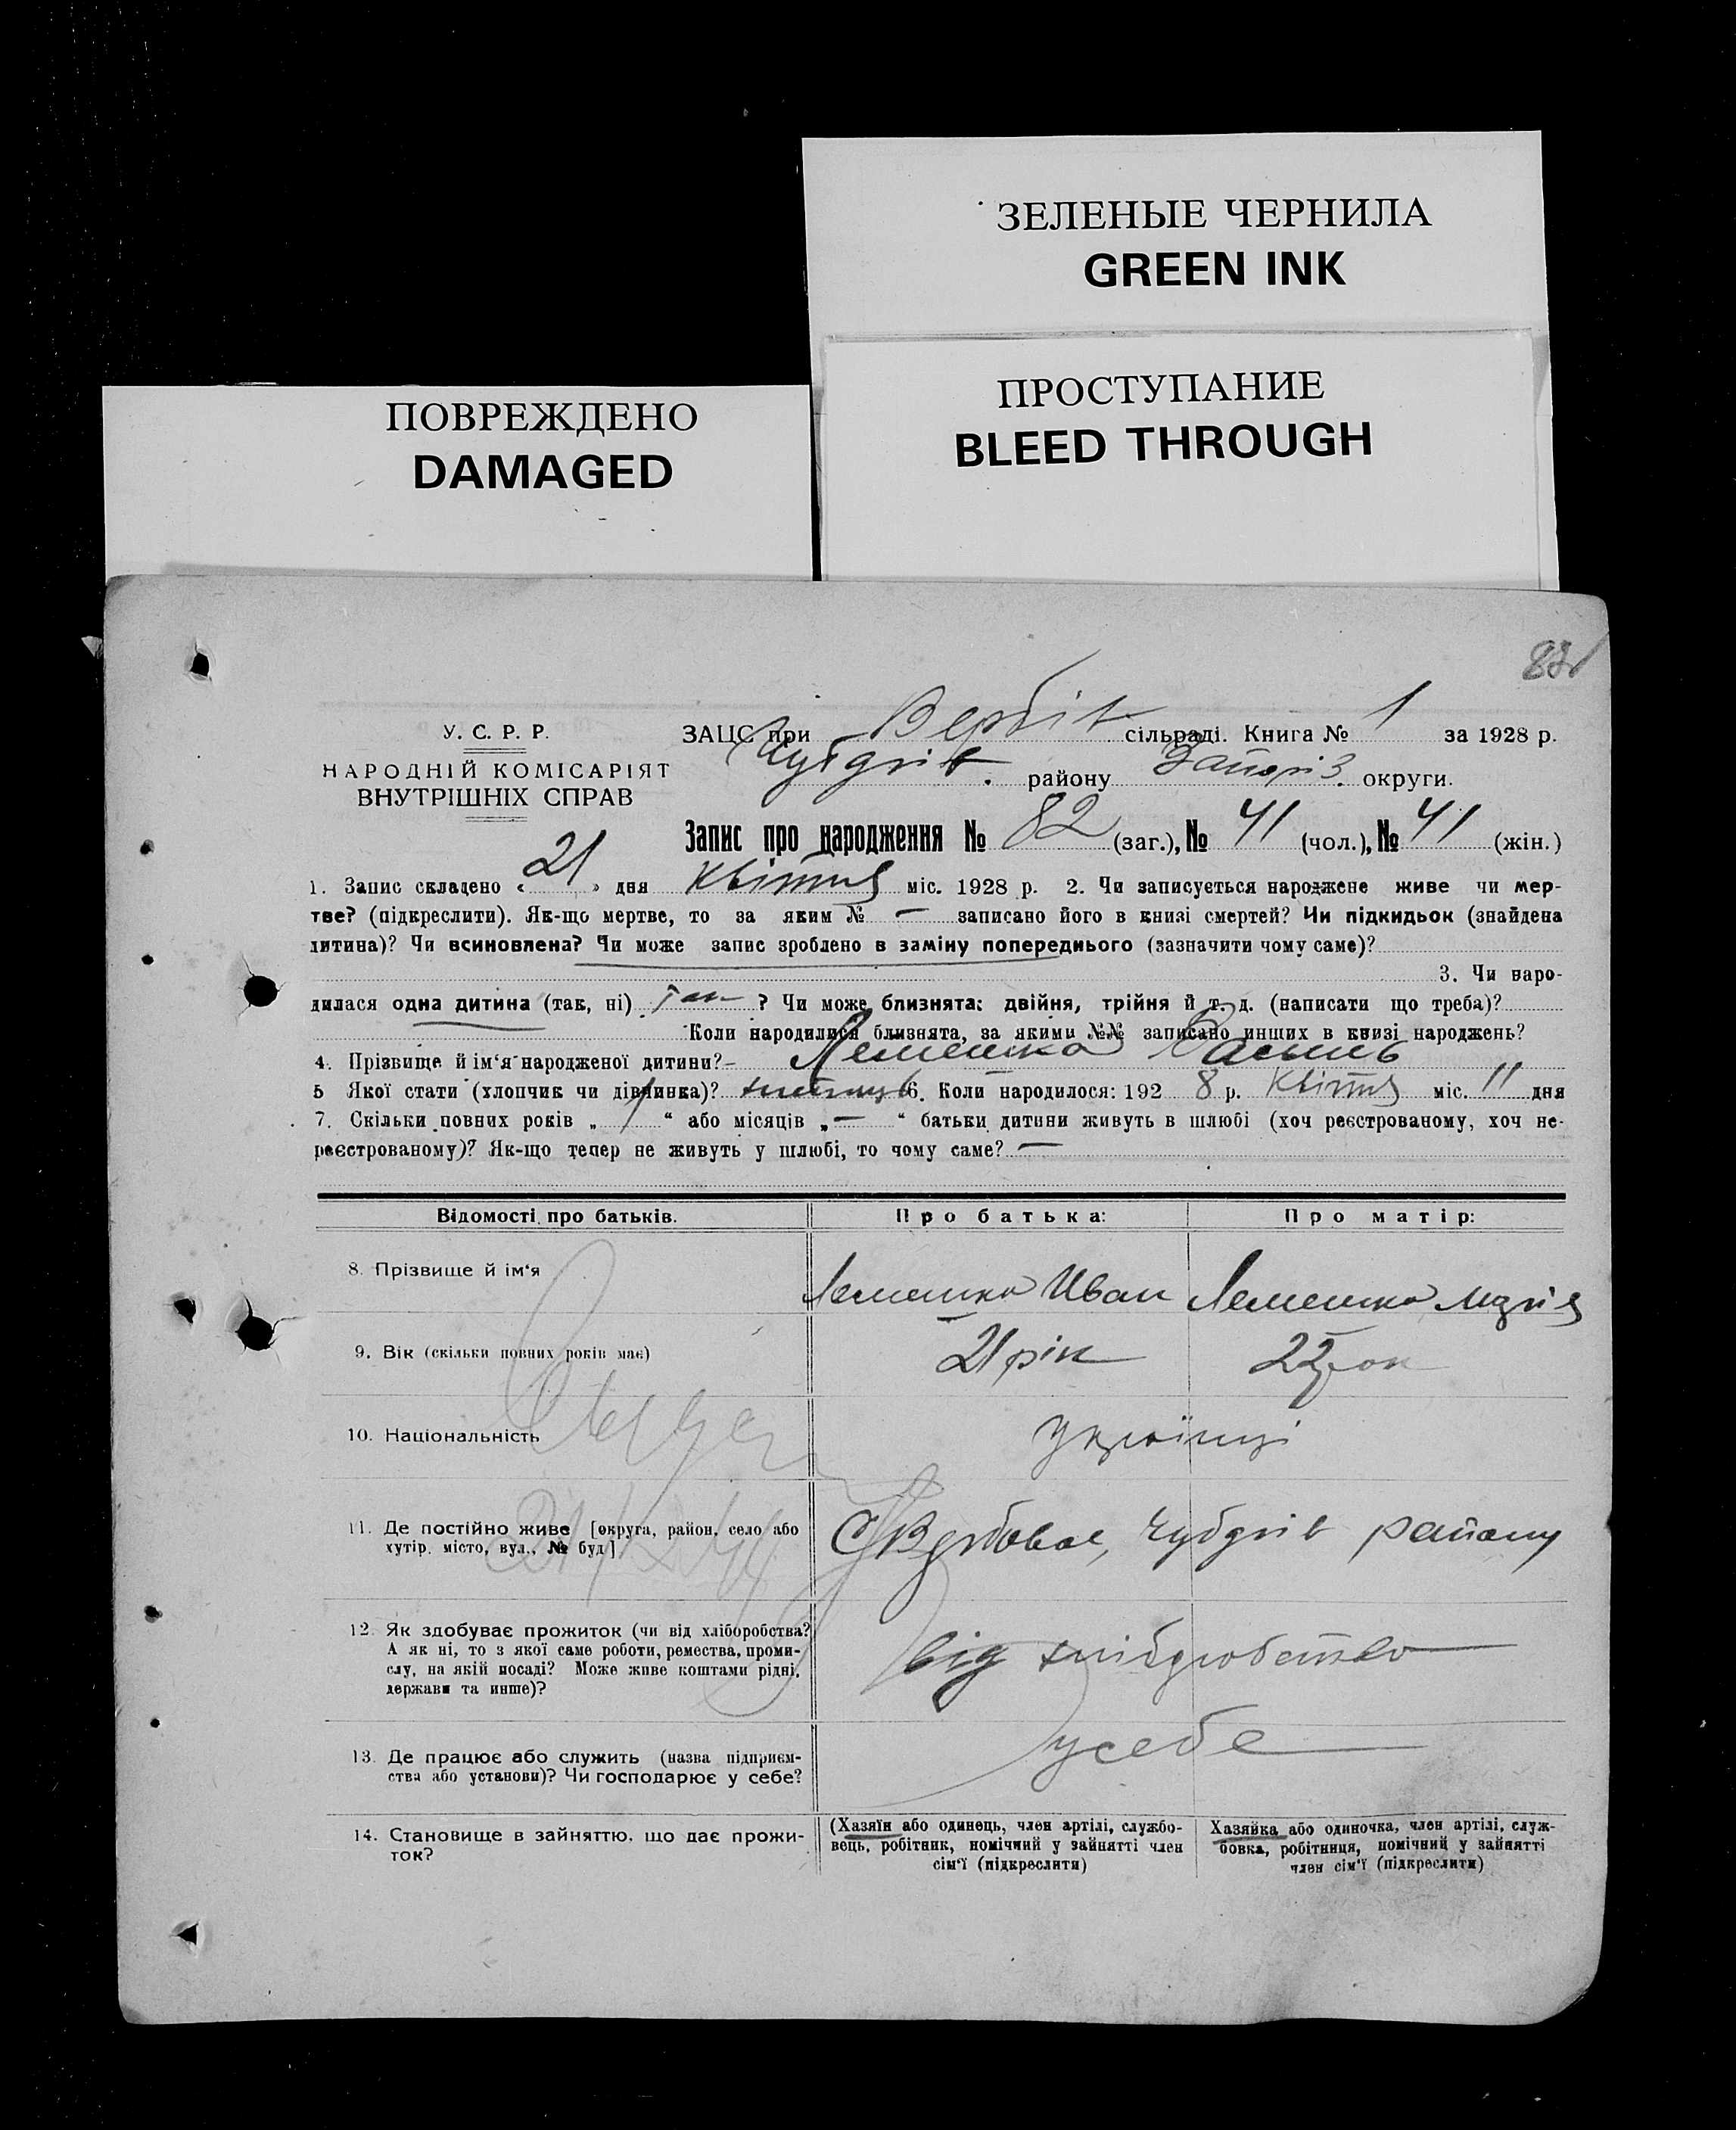 ЗЕЛЕНЫЕ ЧЕРНИЛА
GREEN INK
ПРОСТУПАНИЕ
BLEED THROUGH
ПОВРЕЖДЕНО
DAMAGED
У. С. Р. Р.
НАРОДНІЙ КОМІСАРІЯТ
ВНУТРІШНІХ СПРАВ
ЗАЦС при Вербів сільраді. Книга № 1 за 1928 р.
Чубарів. району Запоріз. округи.
Запис про народження № 82 (заг.), № 41 (чол.), № 41 (жін.)
1. Запис складено « 21 » дня Квітня міс. 1928 р. 2. Чи записується народжене живе чи мер-
тве? (підкреслити). Як-що мертве, то за яким № — записано його в книзі смертей? Чи підкидьок (знайдена
дитина)? Чи всиновлена? Чи може запис зроблено в заміну попереднього (зазначити чому саме)?
3. Чи наро-
дилася одна дитина (так, ні) так ? Чи може близнята: двійня, трійня й т. д. (написати що треба)?
Коли народилися близнята, за якими №№ записано инших в книзі народжень?
4. Прізвище й ім'я народженої дитини?- Лемешко Василь
5 Якої стати (хлопчик чи дівчинка)? хлопчик 6. Коли народилося: 192 8 р. Квітня міс. 11 дня
7. Скільки повних років „ 1 “ або місяців „ — “ батьки дитини живуть в шлюбі (хоч реєстрованому, хоч не-
реєстрованому)? Як-що тепер не живуть у шлюбі, то чому саме? —
Відомості про батьків. Про батька: Про матір:
8. Прізвище й ім'я Лемешко Иван Лемешко Марія
9. Вік (скільки повних років має) 21 рік 22 рок
10. Національність Українці
11. Де постійно живе [округа, район, село або
хутір. місто, вул., № буд] С Вербовое, Чубарів району
12. Як здобуває прожиток (чи від хліборобства?
А як ні, то з якої саме роботи, ремества, проми-
слу, на якій посаді? Може живе коштами рідні,
держави та инше)? від хліборобство
13. Де працює або служить (назва підприєм-
ства або установи)? Чи господарює у себе? усебе
14. Становище в зайняттю, що дає прожи-
ток?
(Хазяїн або одинець, член артілі, службо-
вець, робітник, помічний у зайнятті член
сім'ї (підкреслити)
Хазяйка або одиночка, член артілі, служ-
бовка, робітниця, помічний у зайнятті
член сім'ї (підкреслити)